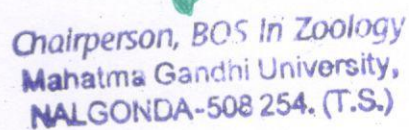 Chairperson, BOS in Zoology
Mahatma Gandhi University,
NALGONDA-508 254. (T.S.)